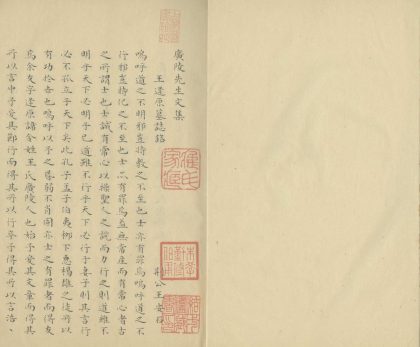 廣陵先生文集
王逢原墓誌銘
荆公王安石
嗚呼道之不明邪豈特教之不至也士亦有罪焉嗚呼道之不
行邪豈特化之不至也士亦有罪焉蓋無常產而有常心者古
之所謂士也士誠有常心以操聖人之說而力行之則道雖不
明乎天下必明乎己道雖不行乎天下必行于妻子則其言行
必不孤立乎天下矣此孔子孟子伯夷柳下惠楊雄之徒所以
有功於世也嗚呼以予之昏弱不肖固亦士之有罪者而得友
焉余友字逢原諱令姓王氏廣陵人也始予愛其文章而得其
所以言中予愛其節行而得其所以行卒予得其所以言浩〻